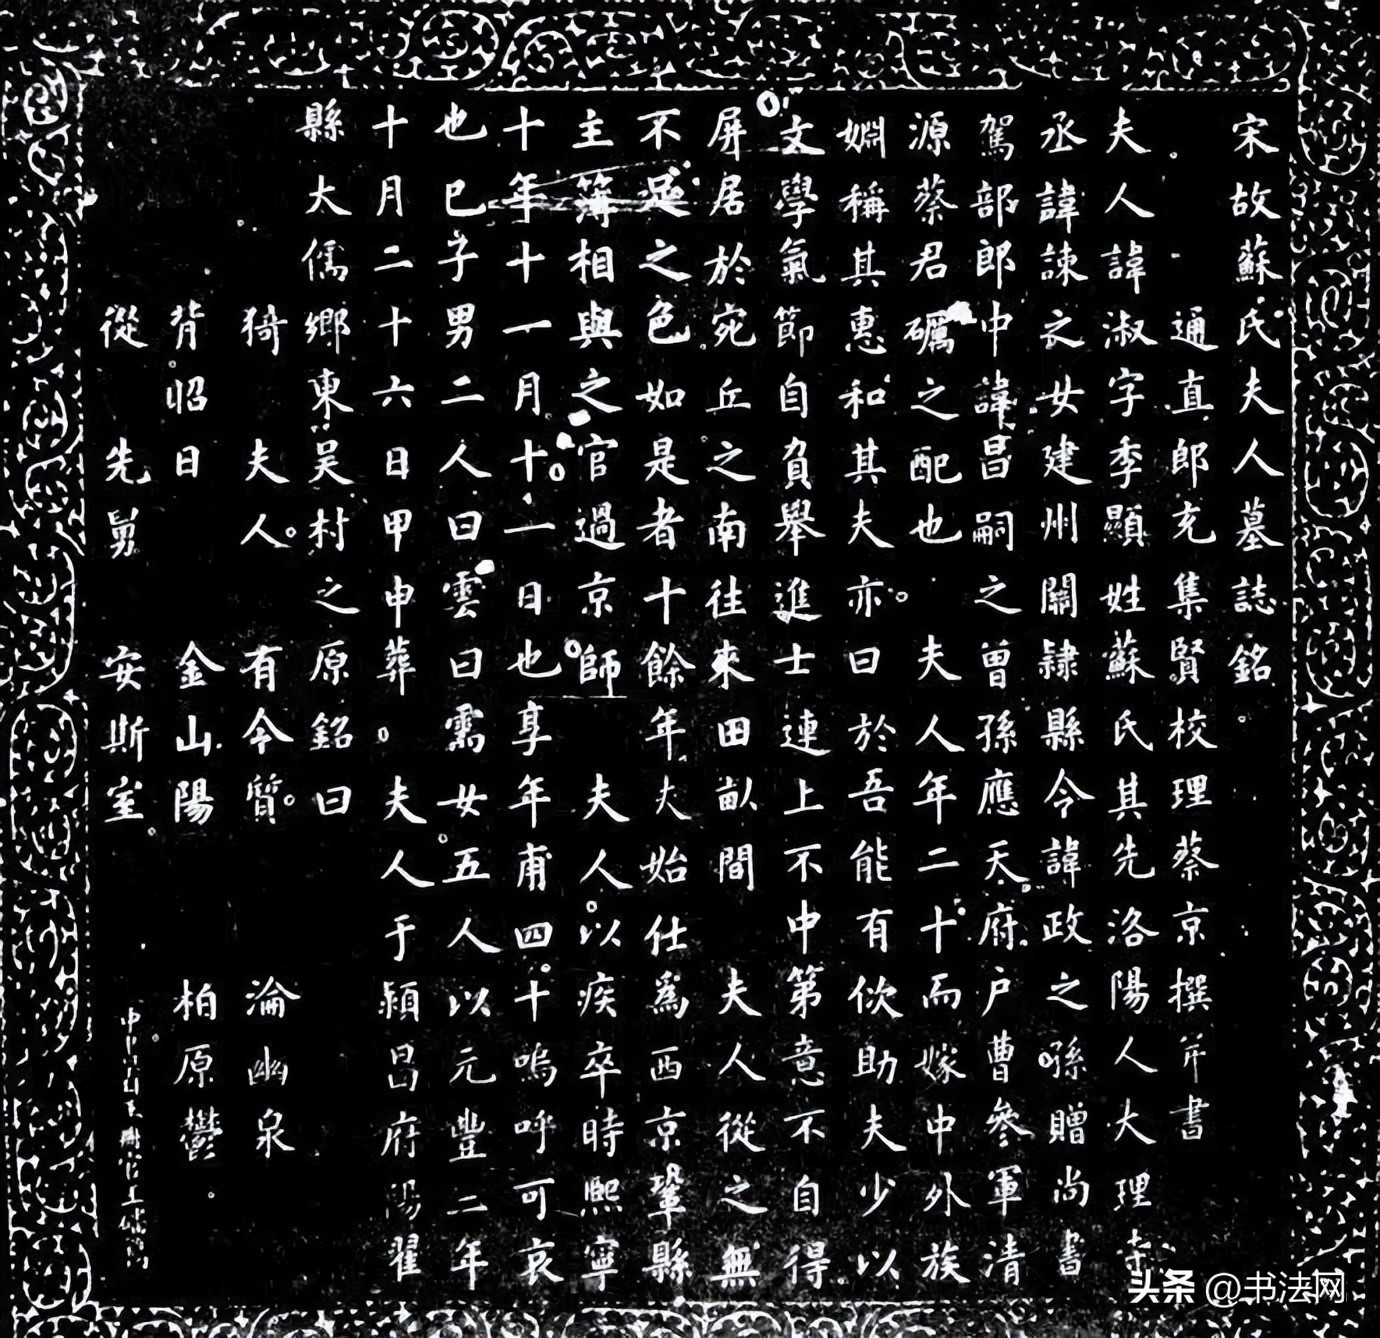 宋故蘇氏夫人墓誌銘
通直郎充集賢校理蔡京撰并書
夫人諱淑字季顯姓蘇氏其先洛陽人大理寺
丞諱諫之女建州關隸縣令諱政之孫贈尚書
駕部郎中諱昌嗣之曾孫應天府戶曹參軍清
源蔡君礪之配也夫人年二十而嫁中外族
婣稱其惠和其夫亦曰於吾能有佽助夫少以
文學氣節自負舉進士連上不中第意不自得
屏居於宛丘之南往來田畝間夫人從之無
不足之色如是者十餘年夫始仕為西京鞏縣
主簿相與之官過京師夫人以疾卒時熙寧
十年十一月十一日也享年甫四十嗚呼可哀
也已子男二人曰雲曰霱女五人以元豐二年
十月二十六日甲申葬夫人于潁昌府陽翟
縣大儒鄉東吳村之原銘曰
猗夫人有令質淪幽泉
背昭日金山陽柏原鬱
從先舅安斯室
头条 @书法网